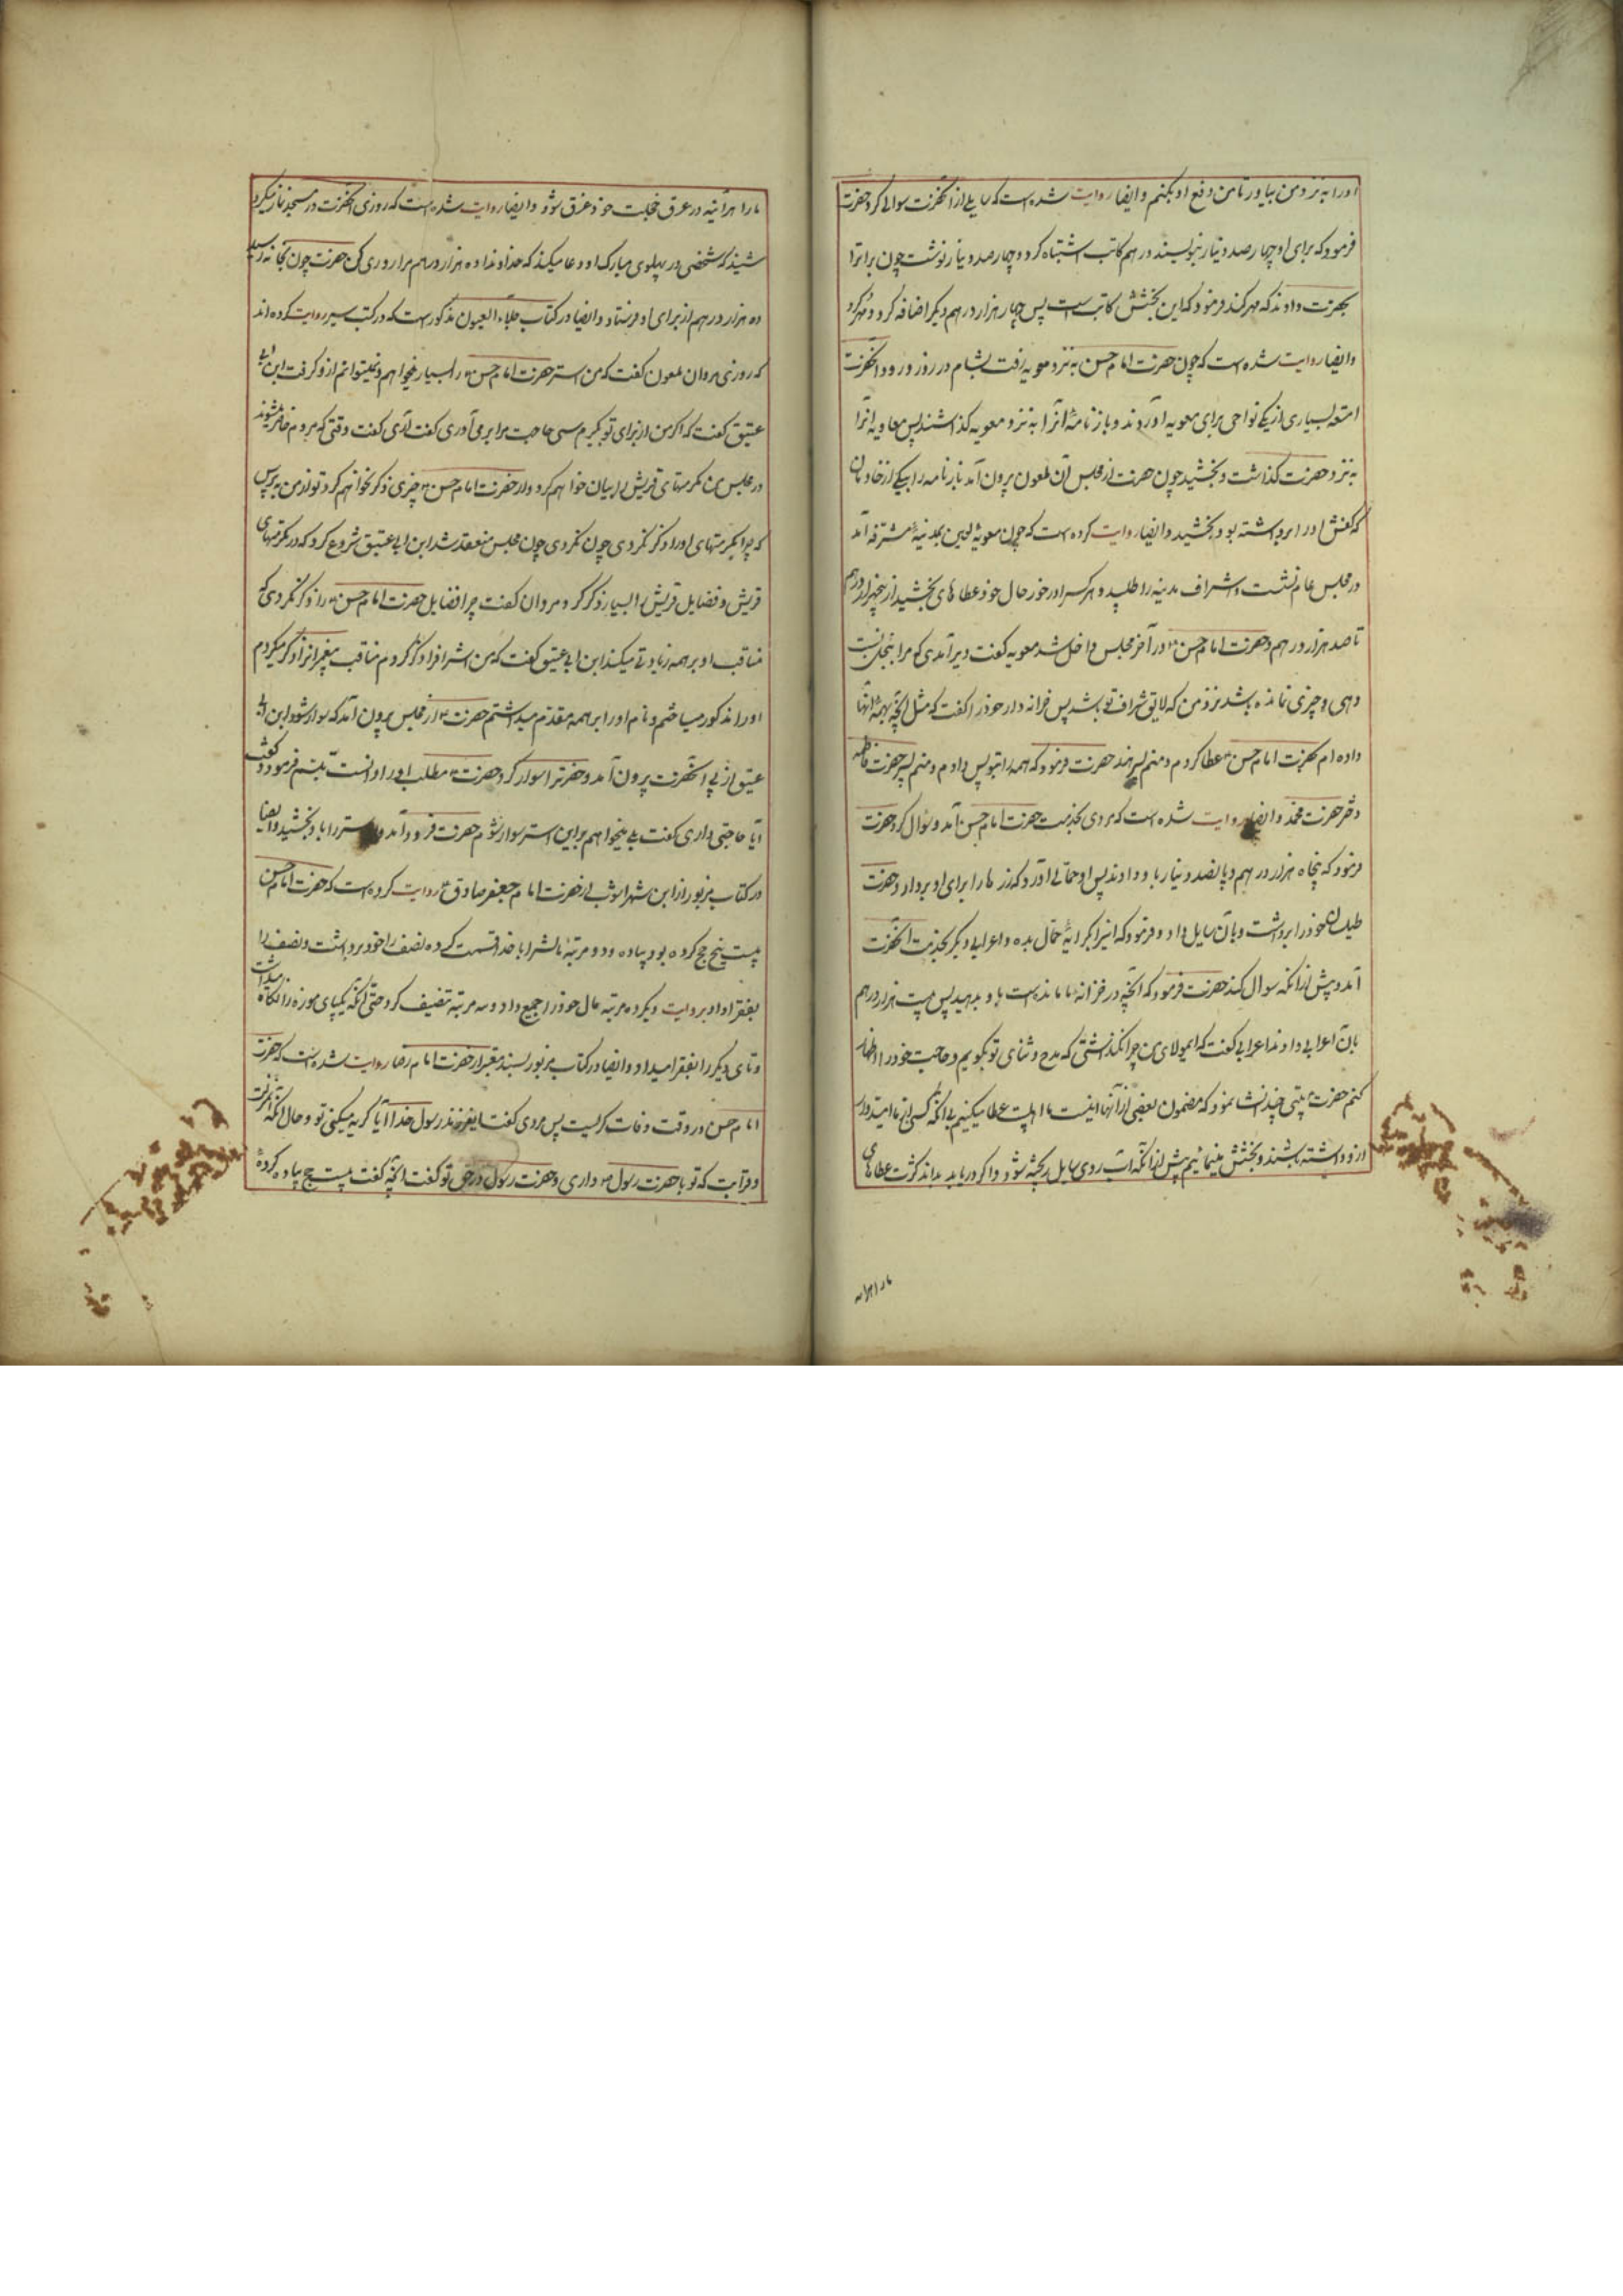 اورا به نزد من بیاور تا من دفع او بکنم و ایضا روایت شده است که سایلی از آنحضرت سوالی کرد حضرت
فرمود که برای او چهار صد دینار بنویسند در هم کاتب اشتباه کرد و چهار صد دینار نوشت چون برات را
بحضرت دادند که مهر کند فرمود که این بخشش کاتب است پس چهار هزار درهم دیگر اضافه کرد و مهر کرد
و ایضا روایت شده است که چون حضرت امام حسن به نزد معویه رفت بشام در روز ورود آنحضرت
امتعه بسیاری از یکی نواحی برای معویه آوردند و بارنامهٔ آنرا به نزد معویه گذاشتند پس معاویه آنرا
به نزد حضرت گذاشت و بخشید چون حضرت از مجلس آن ملعون بیرون آمد بارنامه را بیکی از خادمان
که کفش اورا برداشته بود بخشید و ایضا روایت کرده است که چون معویهٔ لعین بمدینهٔ مشرفه آمد
در مجلس عام نشست و اشراف مدینه را طلبید و هر کس را در خور حال خود عطاهای بخشید از پنجهزار درهم
تا صد هزار درهم و حضرت امام حسن در آخر مجلس داخل شد معویه گفت دیر آمدی که مرا بخل نسبت
دهی و چیزی نمانده باشد نزد من که لایق شرافت تو باشد پس خزانه دار خود را گفت که مثل آنچه بهمهٔ آنها
داده ام بحضرت امام حسن عطا کردم و منم پسر هند حضرت فرمود که همه را بتو پس دادم و منم پسر حضرت فاطمه
دختر حضرت محمد و ایضا روایت شده است که مردی بخدمت حضرت امام حسن آمد و سوال کرد حضرت
فرمود که پنجاه هزار درهم و پانصد دینار باو دادند پس او حمالی آورد که زرها را برای او بردارد و حضرت
طیلسان خود را برداشت و بآن سایل داد و فرمود که اینرا بکرایهٔ حمال بده و اعرابی دیگر بخدمت آنحضرت
آمد و پیش از آنکه سوال کند حضرت فرمود که آنچه در خزانهٔ ما مانده است باو بدهید پس بیست هزار درهم
بآن اعرابی دادند اعرابی گفت که ایمولای من چرا نگذاشتی که مدح و ثنای تو بگویم و حاجت خود را اظهار
کنم حضرت بیتی چند انشا نمود که مضمون بعضی از آنها اینست ما اهلبیت عطا میکنیم بی آنکه کسی از ما امیدوار
آرزو داشته باشند و بخشش مینمائیم پیش از آنکه آب روی سایل ریخته شود و اگر دریا بداند کثرت عطاهای
مارا هراینه
مارا هرآینه در عرق خجلت خود غرق شود و ایضا روایت شده است که روزی آنحضرت در مسجد نماز میکرد
شنید که شخصی در پهلوی مبارک او دعا میکند که خداوندا ده هزار درهم مرا روزی کن حضرت چون بخانه رسید
ده هزار درهم از برای او فرستاد و ایضا در کتاب جلاء العیون مذکور است که در کتب سیر روایت کرده اند
که روزی مروان ملعون گفت که من استر حضرت امام حسن را بسیار میخواهم و نمیتوانم ازو گرفت ابن ابی
عتیق گفت که اگر من از برای تو بگیرم سی حاجت مرا بر می آوری گفت آری گفت وقتی که مردم حاضر شوند
در مجلس من مکرمتهای قریش را بیان خواهم کرد و از حضرت امام حسن چیزی ذکر نخواهم کرد تو از من بپرس
که چرا مکرمتهای اورا ذکر نکردی چون نکردی چون مجلس منعقد شد ابن ابی عتیق شروع کرد که در مکرمتهای
قریش و فضایل قریش را بسیار ذکر کرد مروان گفت چرا فضایل حضرت امام حسن را ذکر نکردی که
مناقب او بر همه زیادتی میکند ابن ابی عتیق گفت که من اشراف را ذکر کردم مناقب پیغمبران را ذکر میکردم
اورا مذکور میساختم و نام اورا بر همه مقدم میداشتم حضرت از مجلس بیرون آمد که سوار شود ابن ابی
عتیق از پی آنحضرت بیرون آمد و حضرت را سوار کرد و حضرت مطلب اورا دانست تبسم فرمود و گفت
آیا حاجتی داری گفت بلی میخواهم بر این استر سوار شوم حضرت فرود آمد و استر را باو بخشید و ایضا
در کتاب مزبور از ابن شهراشوب از حضرت امام جعفر صادق روایت کرده است که حضرت امام حسن
بیست پنج حج کرده بود پیاده و دو مرتبه مالش را با خدا قسمت کرده نصف را خود برداشت و نصف را
بفقرا داد و بروایت دیگر ده مرتبه مال خود را جمیع داد و سه مرتبه تنصیف کرد حتی آنکه یکپای موزه را نگاه میداشت
و تای دیگر را بفقرا میداد و ایضا در کتاب مزبور بسند معتبر از حضرت امام رضا روایت شده است که حضرت
امام حسن در وقت وفات گریست پس مردی گفت ای فرزند رسول خدا آیا گریه میکنی تو و حال آنکه
و قرابت که تو با حضرت رسول داری و حضرت رسول در حق تو گفت آنچه گفت بیست حج پیاده کردهٔ